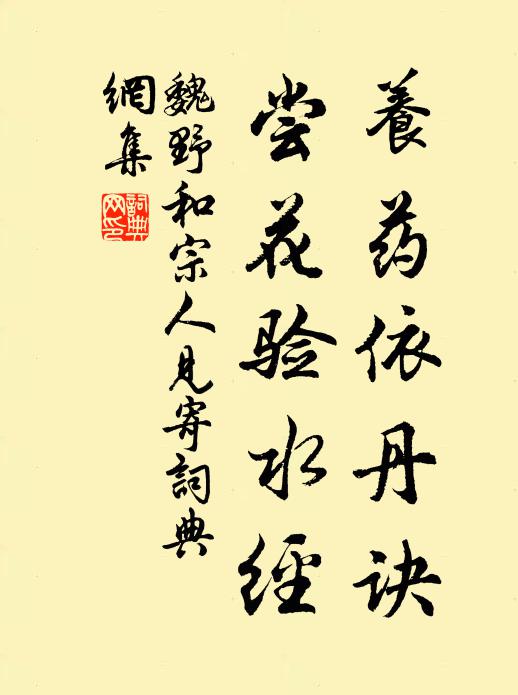 養药依丹诀
尝花验水經
魏野和宗人見寄詞典
網集
詞典
网印